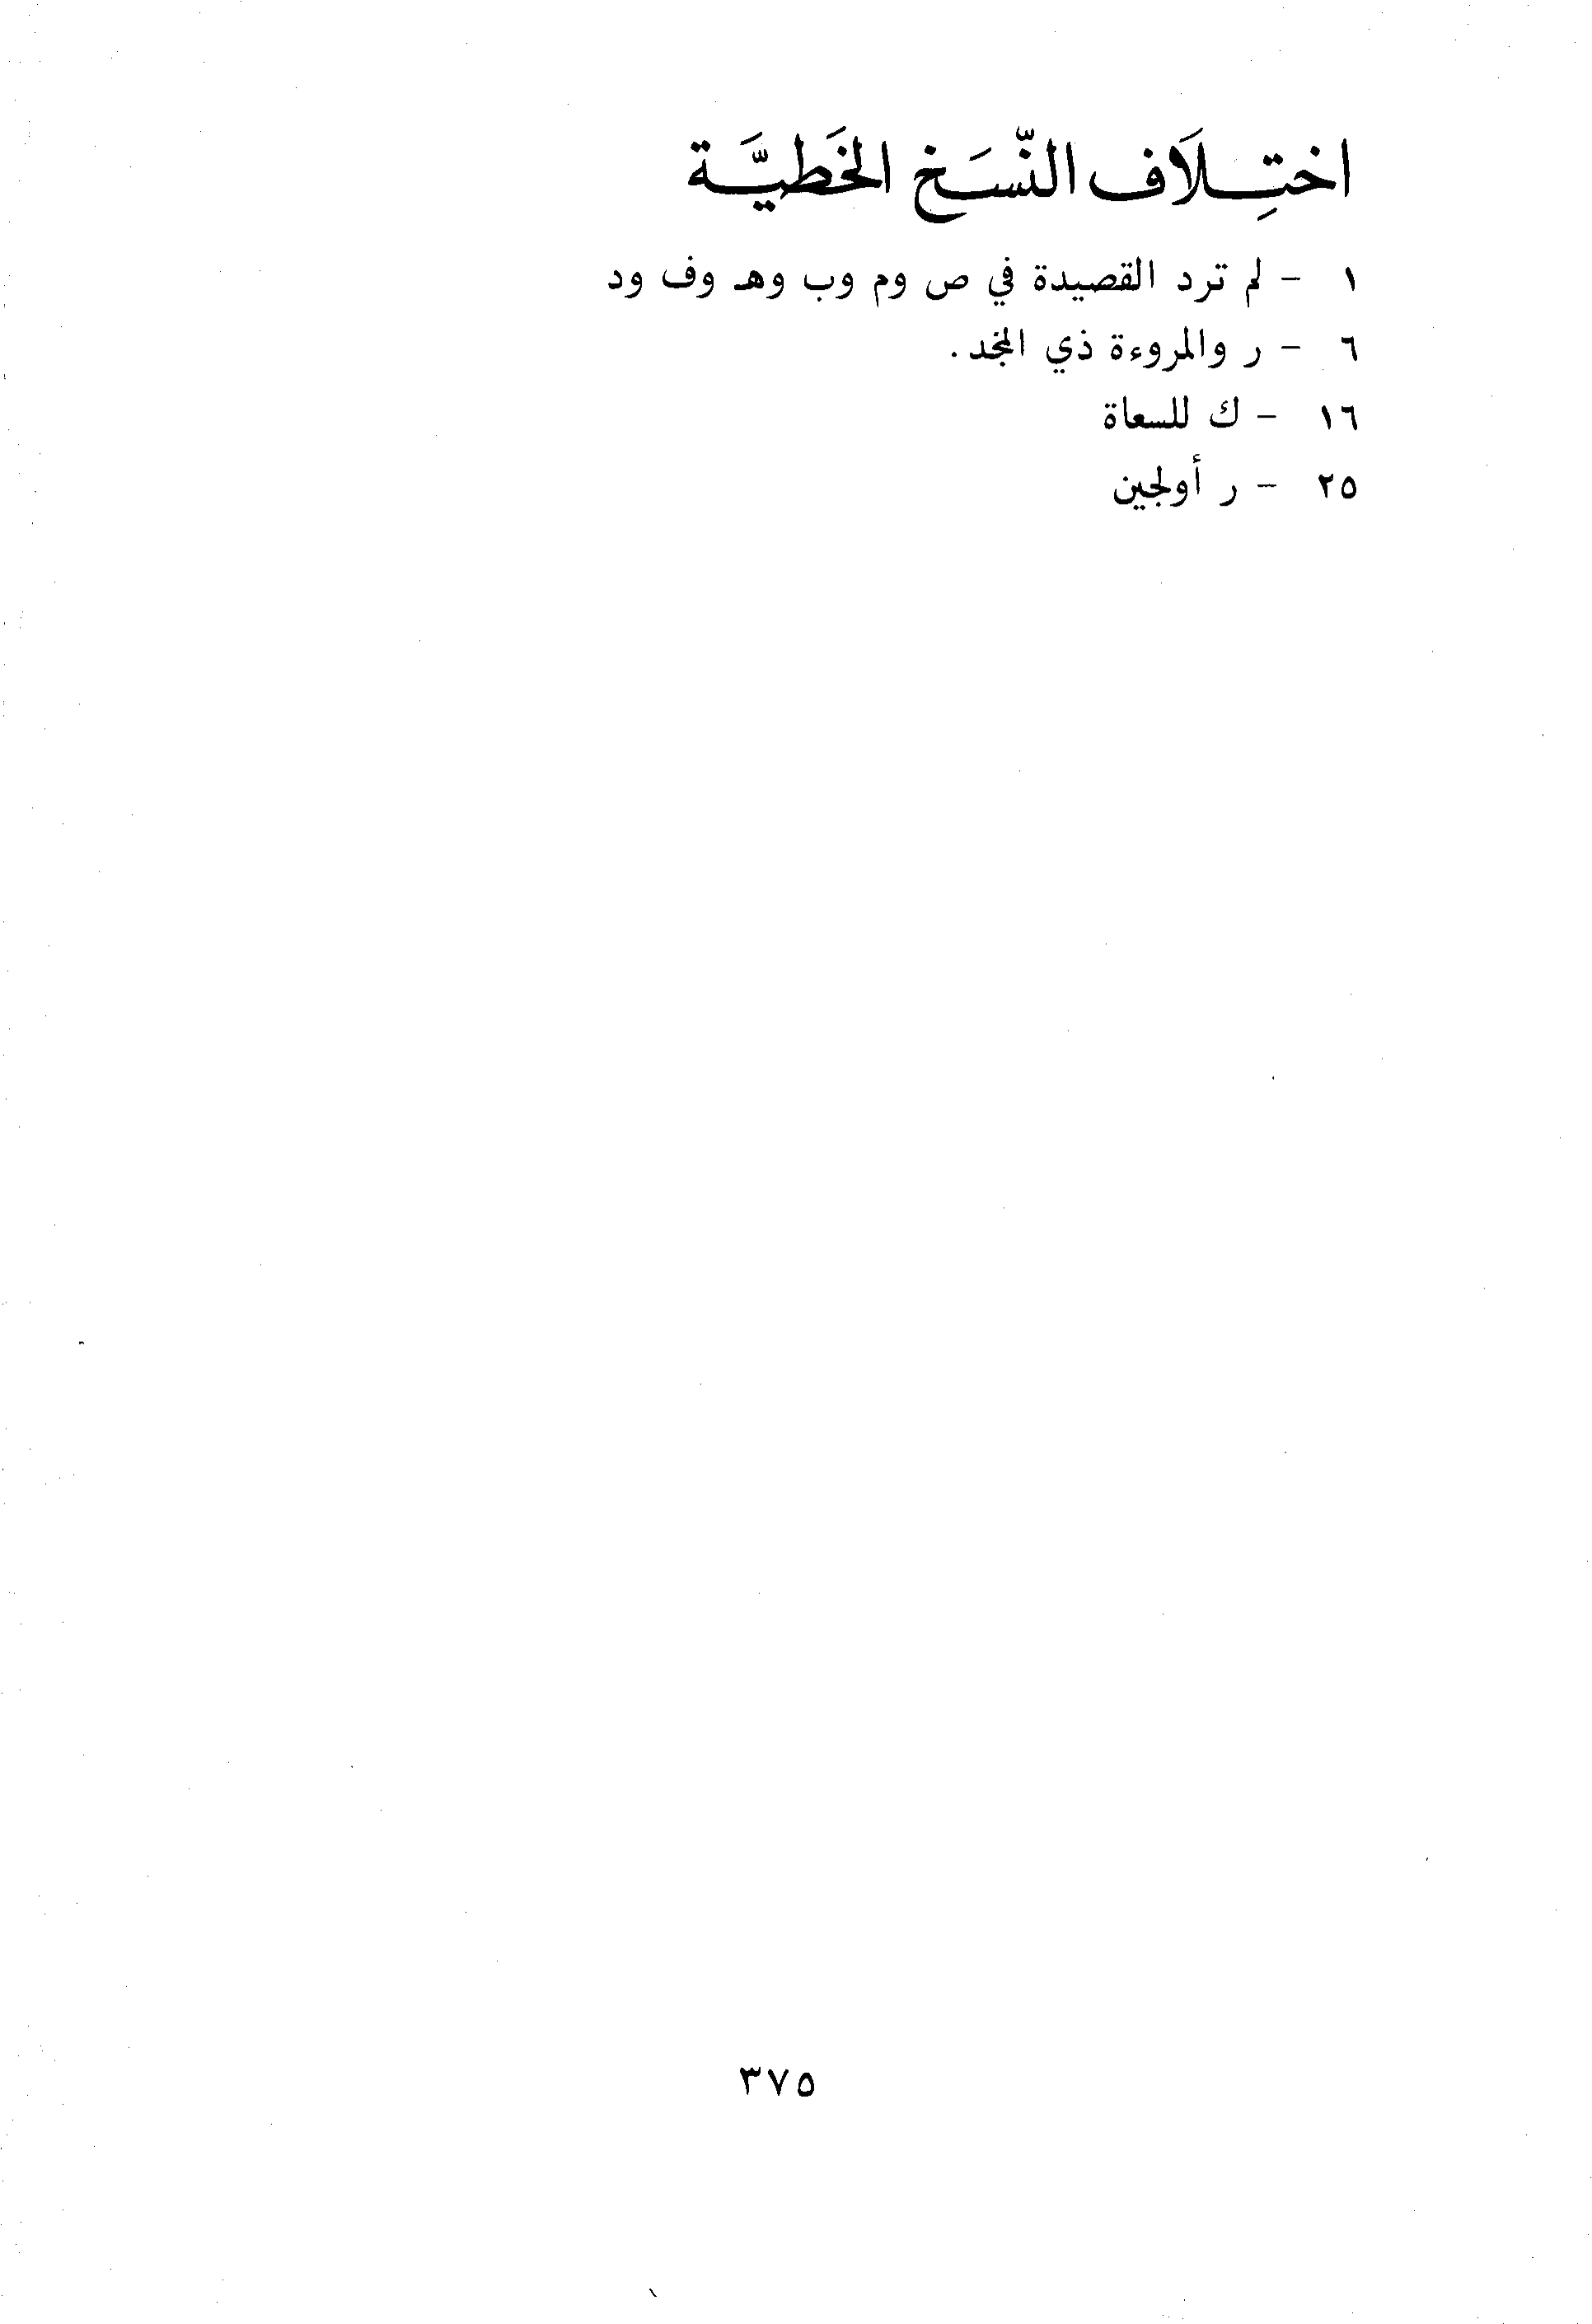 اختِلَاف النّسَخ الخَطيَّة
١ - لم ترد القصيدة في ص وم وب وهـ وف ود
٦ - ر والمروءة ذي المجد.
١٦ - ك للسعاة
٢٥ - ر أولجين
٣٧٥